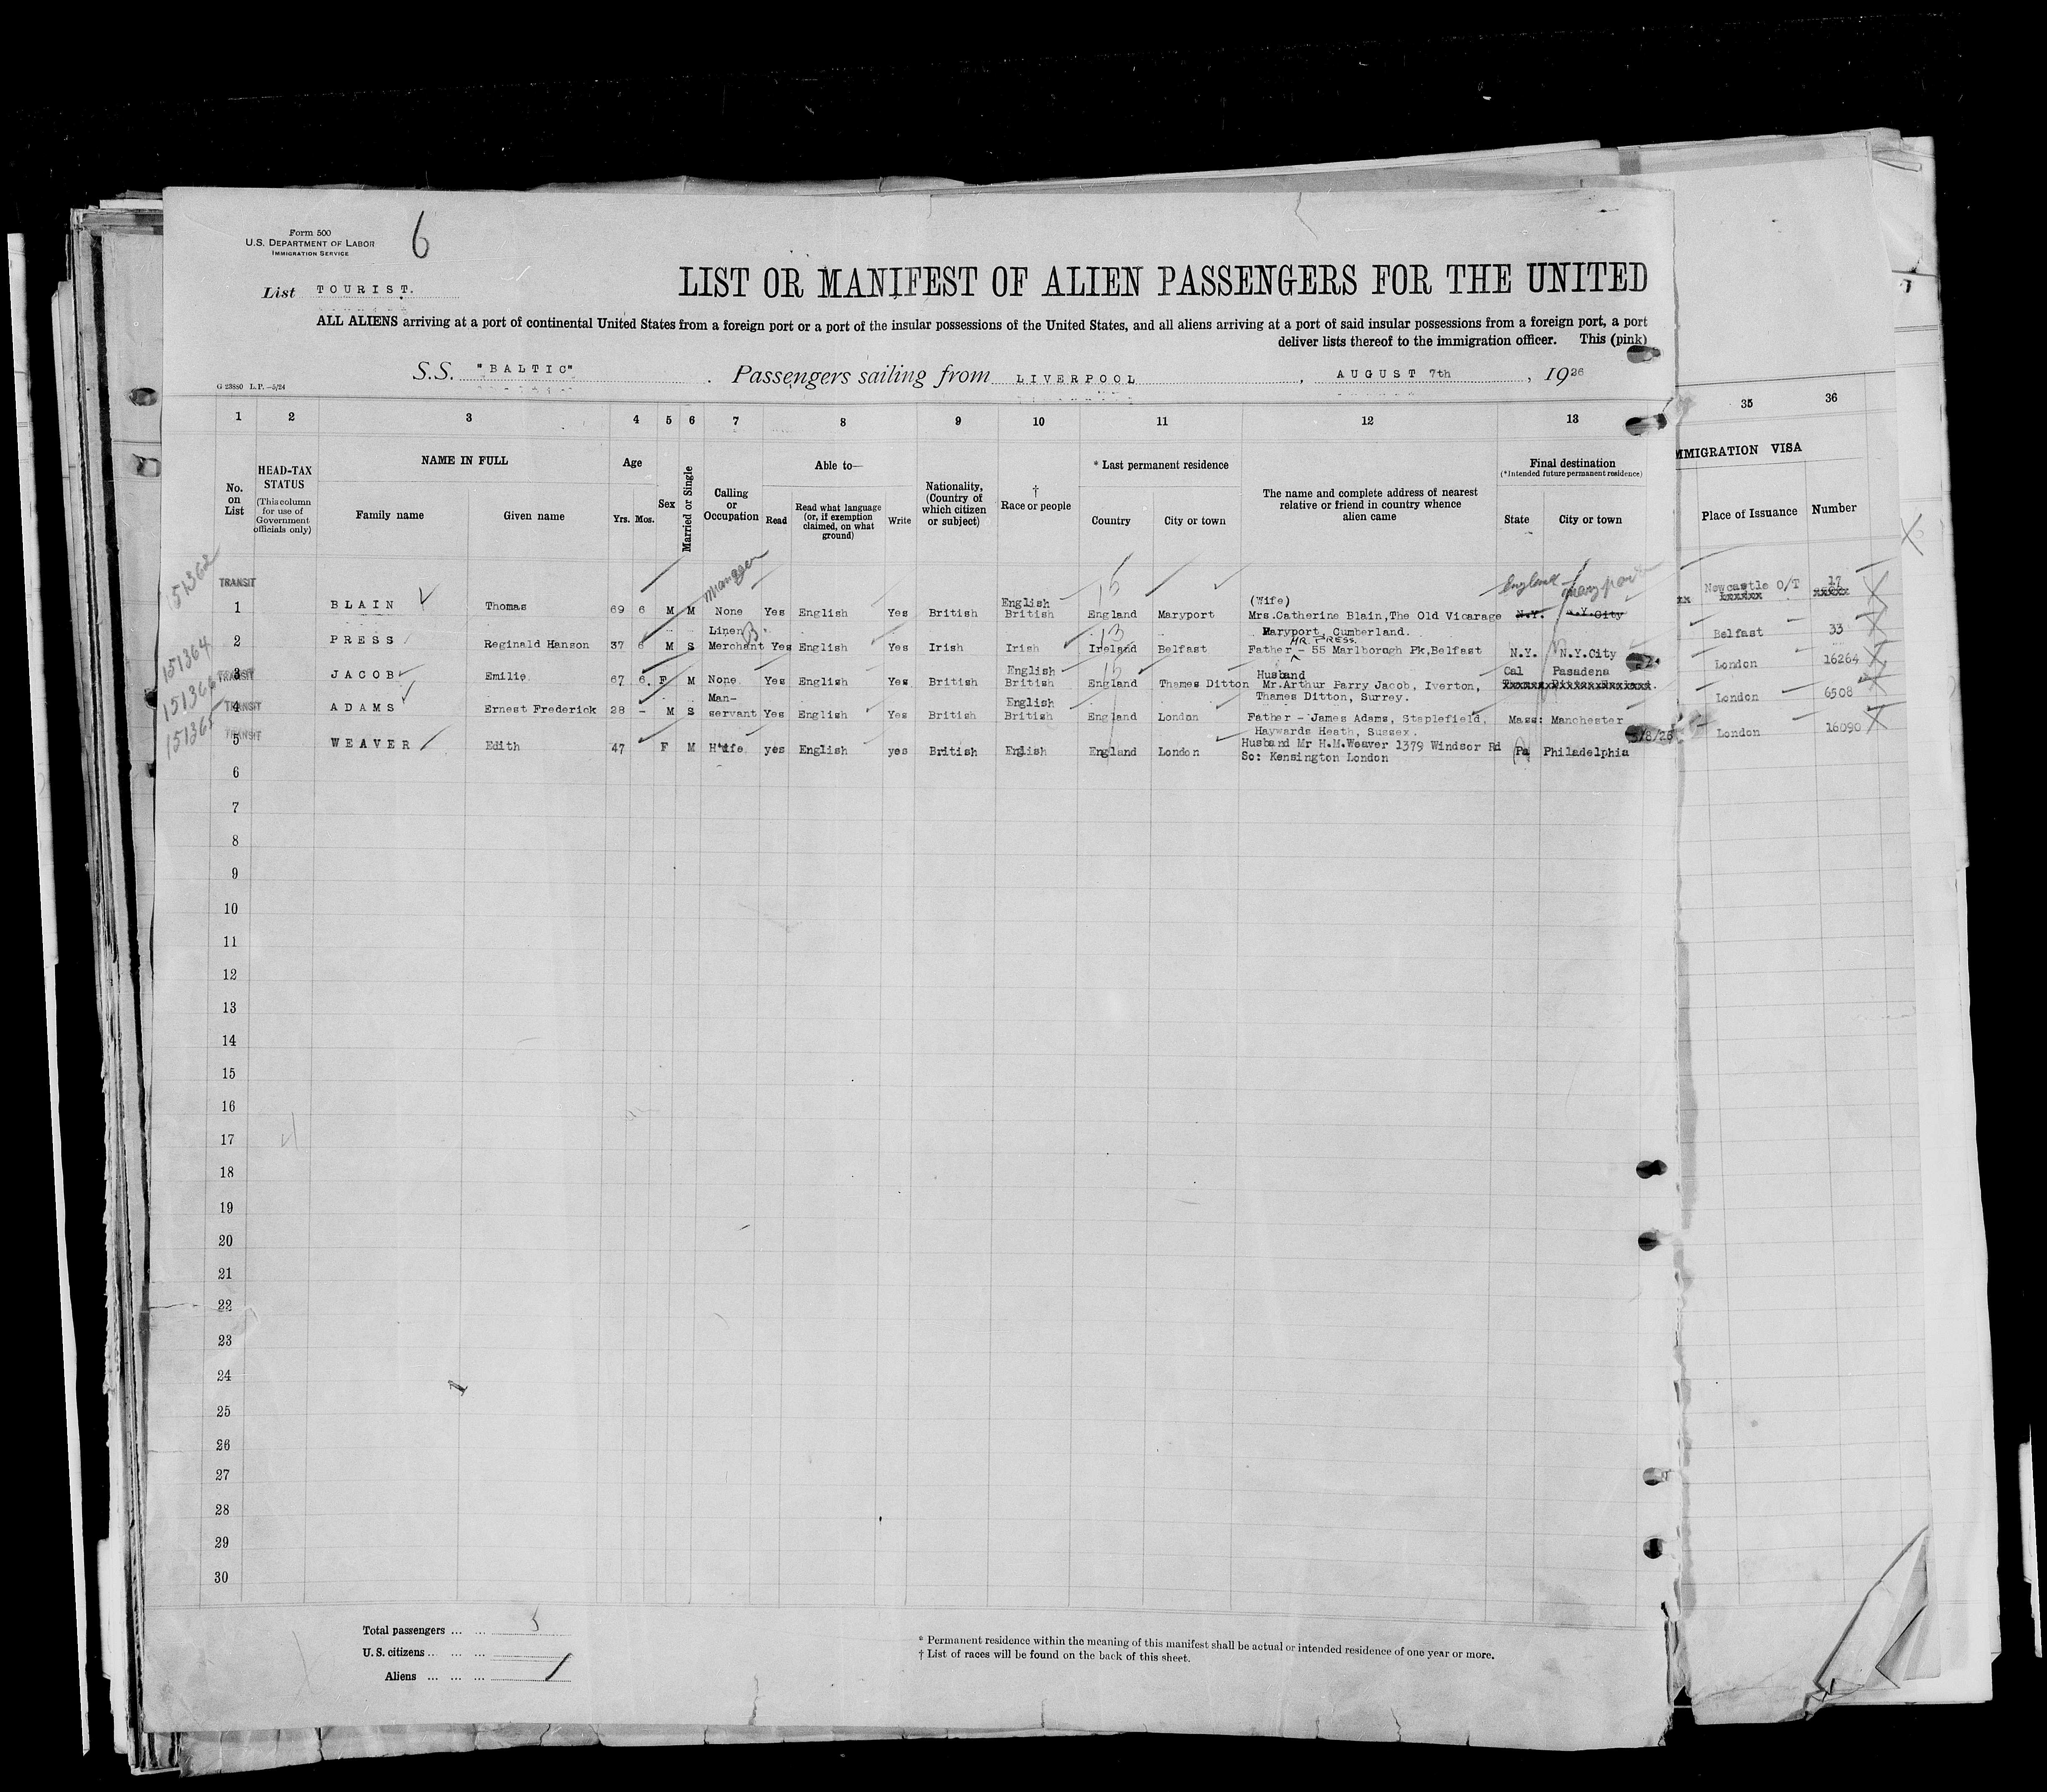 6
Form 500
U.S. DEPARTMENT OF LABOR
IMMIGRATION SERVICE
List TOURIST.
LIST OR MANIFEST OF ALIEN PASSENGERS FOR THE UNITED
ALL ALIENS arriving at a port of continental United States from a foreign port or a port of the insular possessions of the United States, and all aliens arriving at a port of said insular possessions from a foreign port, a port
deliver lists thereof to the immigration officer. This (pink)
S.S. "BALTIC" . Passengers sailing from LIVERPOOL , AUGUST 7th , 1926
G 23880 L.P.—5/24
1 2 3 4 5 6 7 8 9 10 11 12 13 35 36
No. on List
HEAD-TAX STATUS
(This column for use of Government officials only)
NAME IN FULL
Family name Given name
Age
Yrs. Mos.
Sex
Married or Single
Calling or Occupation
Able to—
Read
Read what language (or, if exemption claimed, on what ground)
Write
Nationality, (Country of which citizen or subject)
† Race or people
* Last permanent residence
Country City or town
The name and complete address of nearest relative or friend in country whence alien came
Final destination
(*Intended future permanent residence)
State City or town
MMIGRATION VISA
Place of Issuance Number
151362
TRANSIT manager 15 England Maryport Newcastle O/T 17
English (Wife)
1 BLAIN Thomas 69 6 M M None Yes English Yes British British England Maryport Mrs.Catherine Blain,The Old Vicarage N.Y. N.Y.City
Maryport, Cumberland.
Linen B. 13 MR PRESS Belfast 33
2 PRESS Reginald Hanson 37 6 M S Merchant Yes English Yes Irish Irish Ireland Belfast Father - 55 Marlborough Pk,Belfast N.Y. N.Y.City
151364
English 15 Husband Cal Pasadena London 16264
TRANSIT 3 JACOB Emilie 67 6. F M None Yes English Yes British British England Thames Ditton Mr.Arthur Parry Jacob, Iverton,
Thames Ditton, Surrey.
151366
Man- English London 6508
TRANSIT 4 ADAMS Ernest Frederick 28 - M S servant Yes English Yes British British England London Father - James Adams, Staplefield, Mass: Manchester
Haywards Heath, Sussex.
151365
TRANSIT London 16090
5 WEAVER Edith 47 F M H'wife yes English yes British English England London Husband Mr H.M.Weaver 1379 Windsor Rd Pa Philadelphia
So: Kensington London
6
7
8
9
10
11
12
13
14
15
16
17
18
19
20
21
22
23
24
25
26
27
28
29
30
Total passengers ... ... 5
U. S. citizens ... ... ...
Aliens ... ... ...
* Permanent residence within the meaning of this manifest shall be actual or intended residence of one year or more.
† List of races will be found on the back of this sheet.